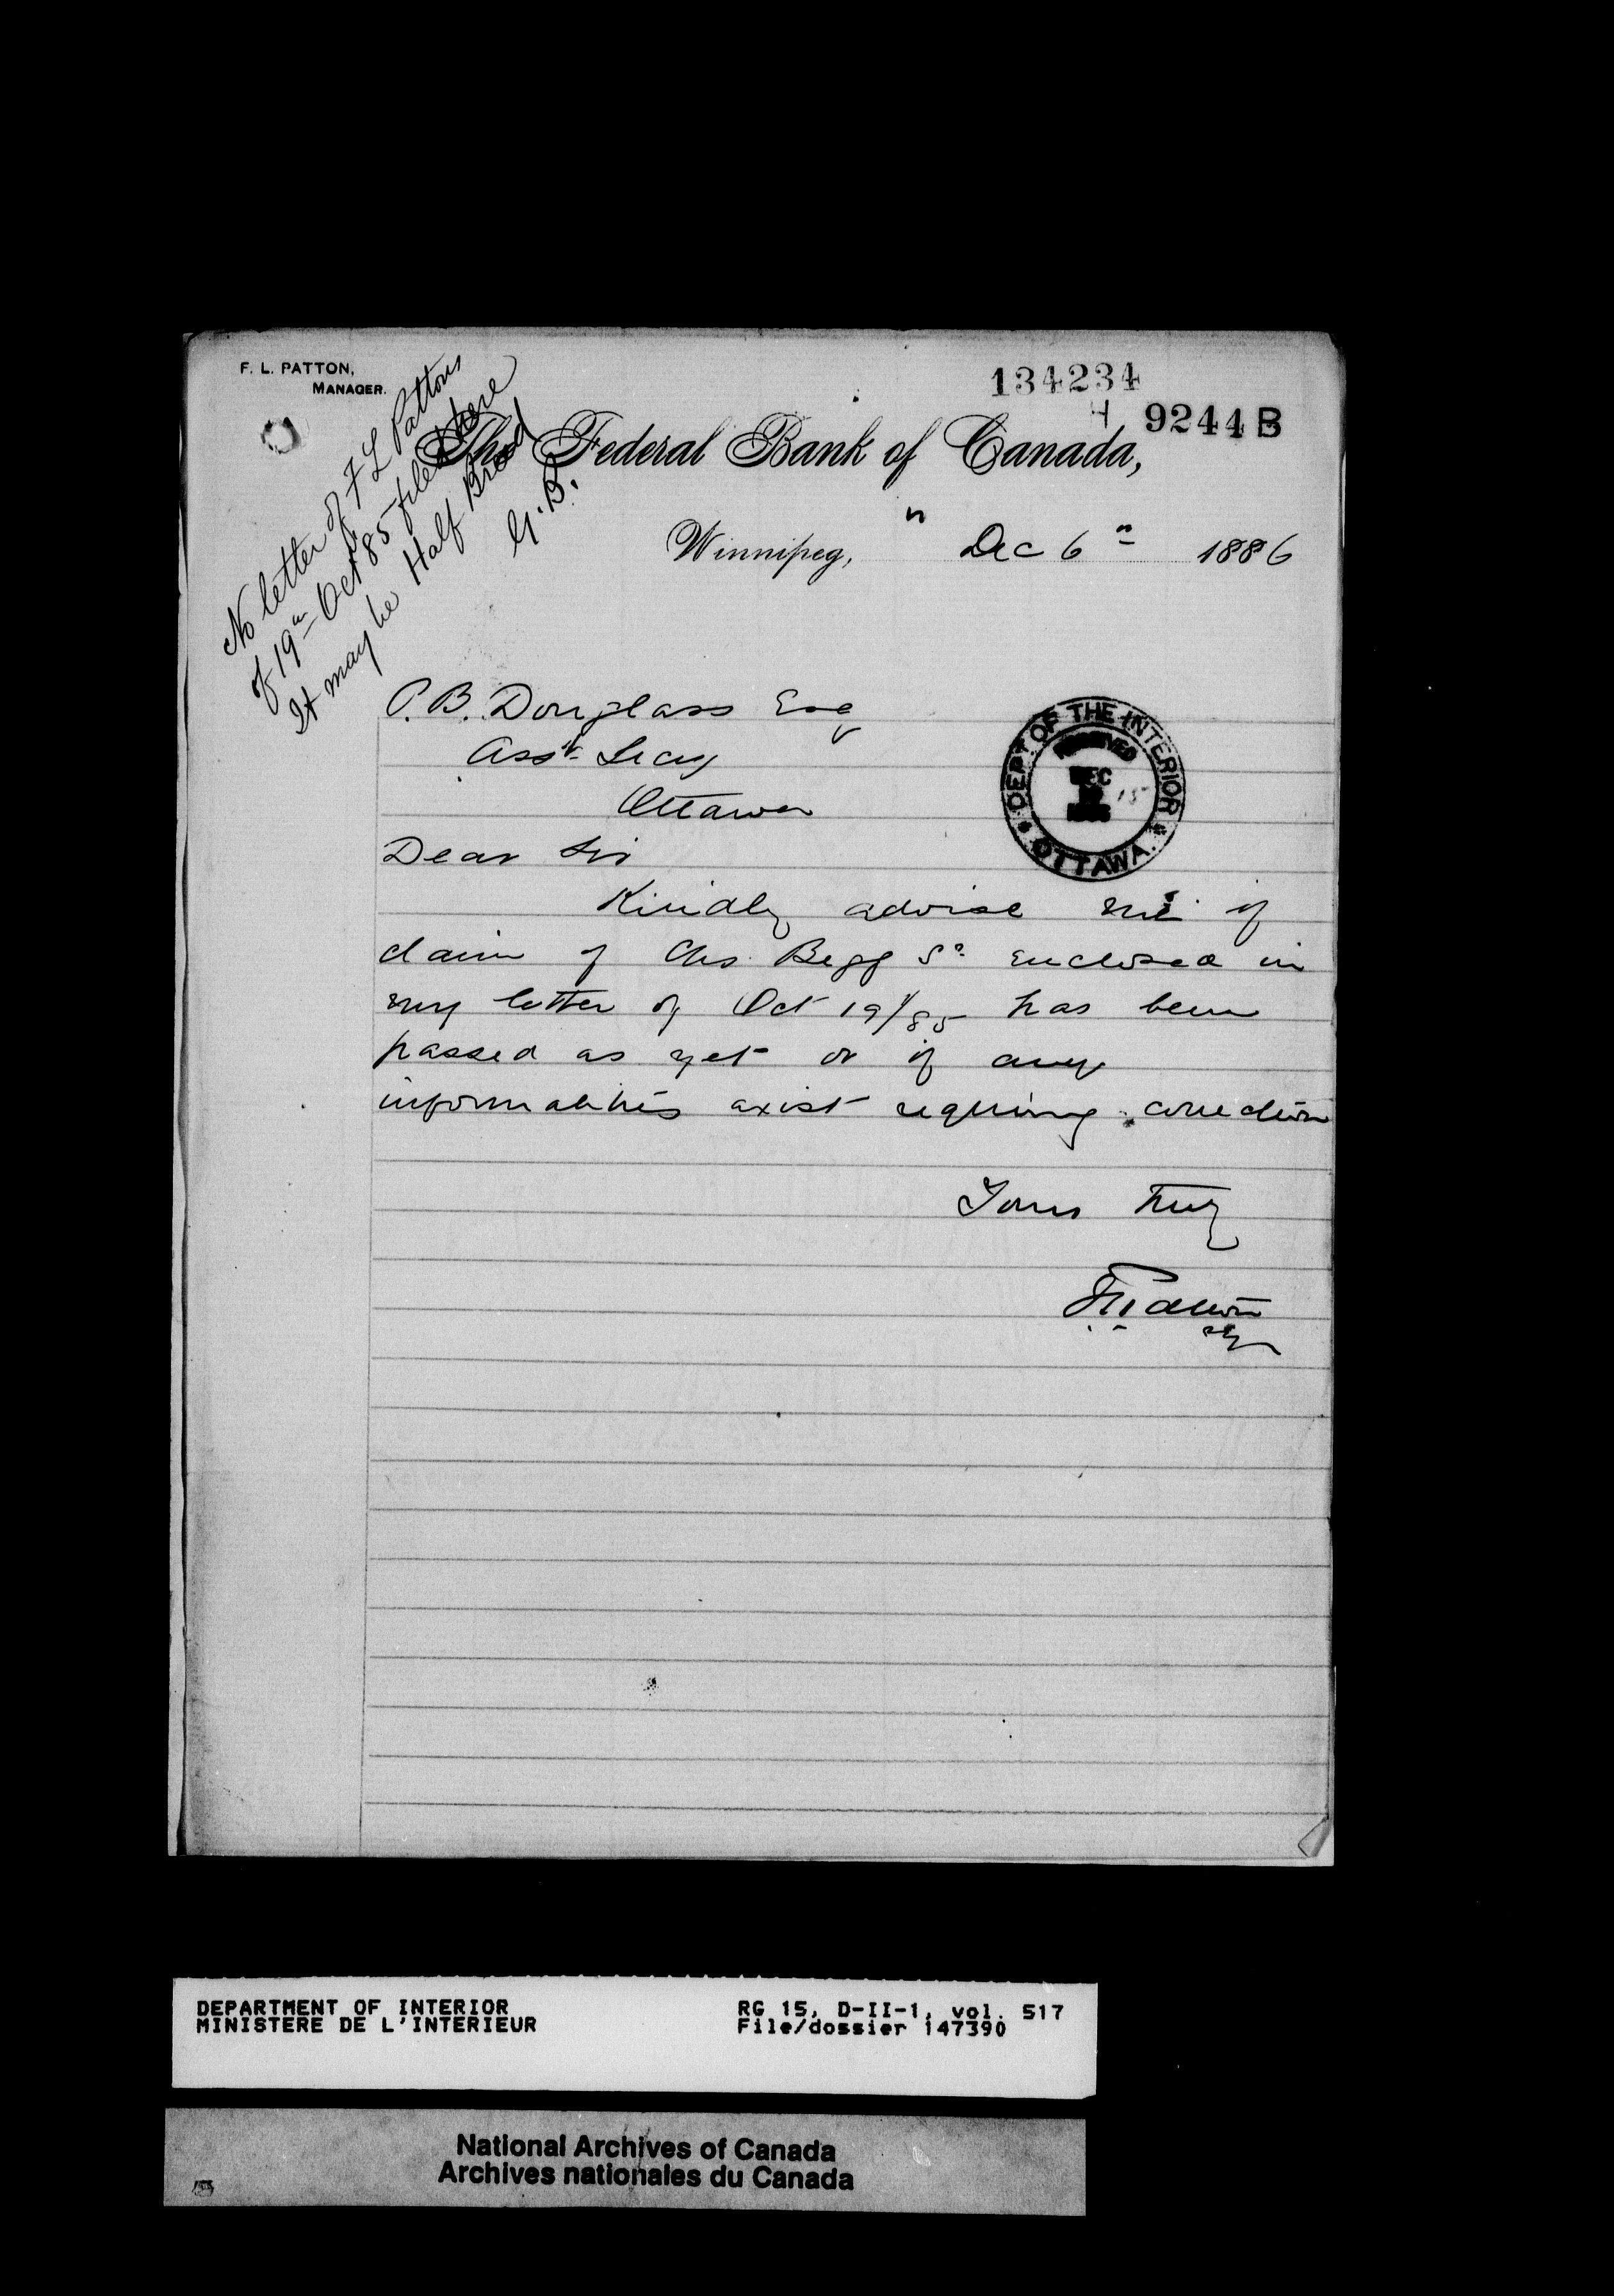 F. L. PATTON,
MANAGER.
134234
H 9244 B
The Federal Bank of Canada,
Winnipeg, Dec 6th 1886
No letter of F L Pattons
of 19th Oct 85 filed here
It may be Half Breed
G.B.
P. B. Douglass Esq
Asst Secy
Ottawa
DEPT OF THE INTERIOR
RECEIVED
DEC
15
OTTAWA.
Dear Sir
Kindly advise me if
claim of Chs Begg Sr enclosed in
my letter of Oct 19/85 has been
passed as yet or if any
informalities exist requiring correction
Yours truly
F L Patton
DEPARTMENT OF INTERIOR
MINISTERE DE L'INTERIEUR
RG 15, D-II-1, vol. 517
File/dossier 147390
National Archives of Canada
Archives nationales du Canada